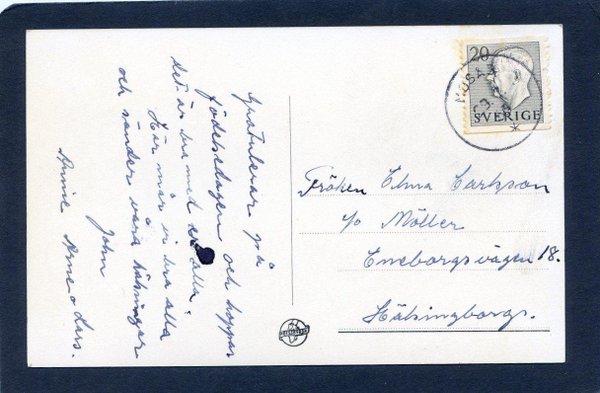 Gratulerar på
födelsedagen och hoppas
det är bra med er alla.
Här mår vi bra alla
och sänder våra hälsningar
John
Annie Arne o Lars.
20
SVERIGE
Fröken Elma Carlsson
c/o Möller
Eneborgsvägen 18.
Hälsingborg.